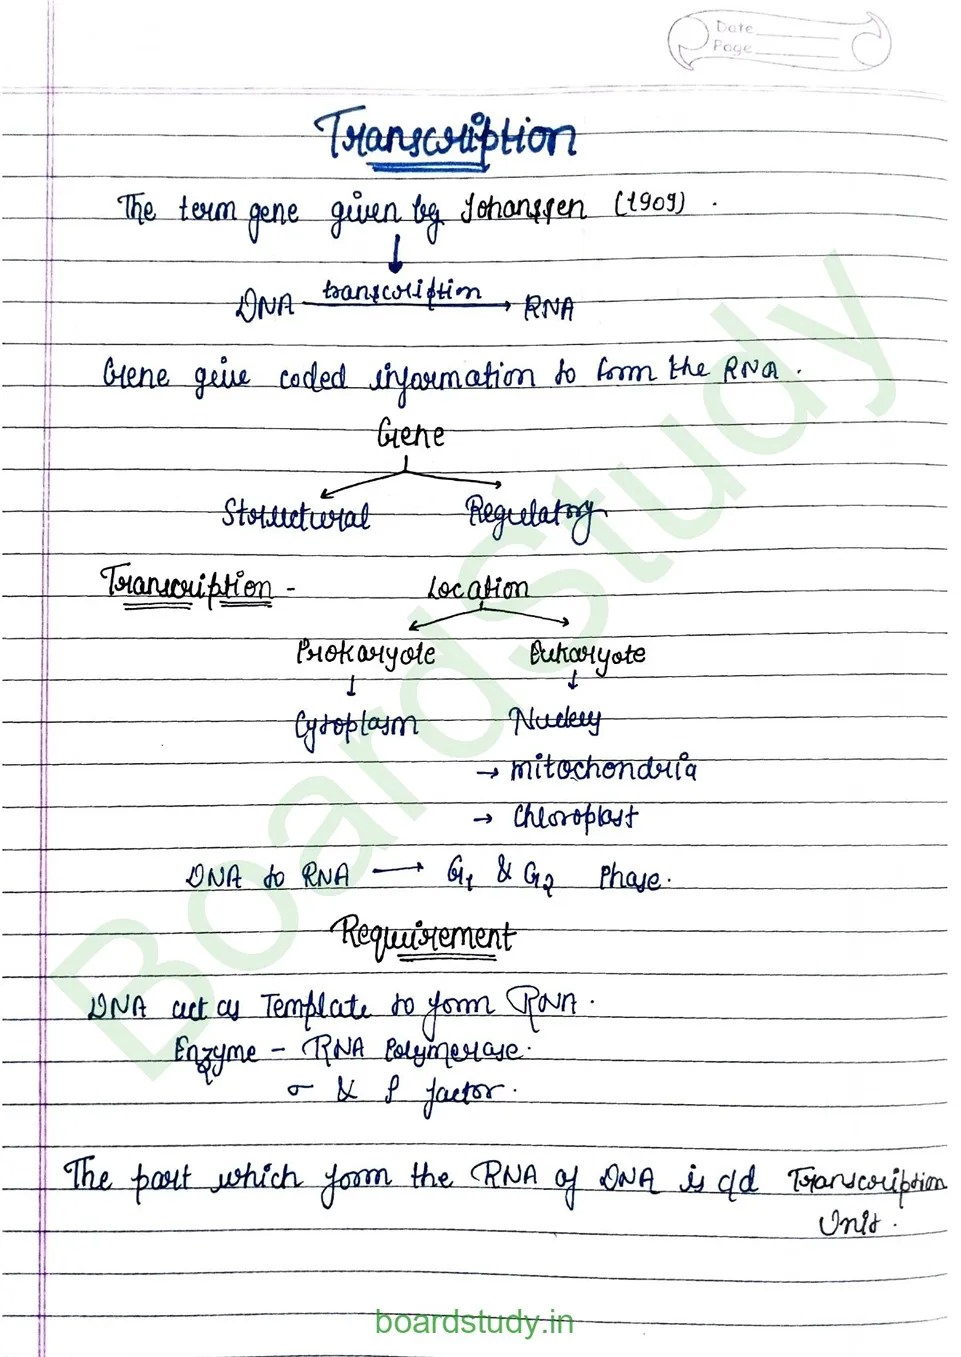 Date
Page
Transcription
The term gene given by Johanssen (1909) .
DNA transcription RNA
Gene give coded information to form the RNA .
Gene
Structural Regulatory
Transcription - Location
Prokaryote Eukaryote
Cytoplasm Nucleus
→ mitochondria
→ Chloroplast
DNA to RNA → G1 & G2 Phase.
Requirement
DNA act as Template to form RNA .
Enzyme - RNA Polymerase.
σ & ρ factor.
The part which form the RNA of DNA is c/d Transcription
Unit.
BoardStudy
boardstudy.in